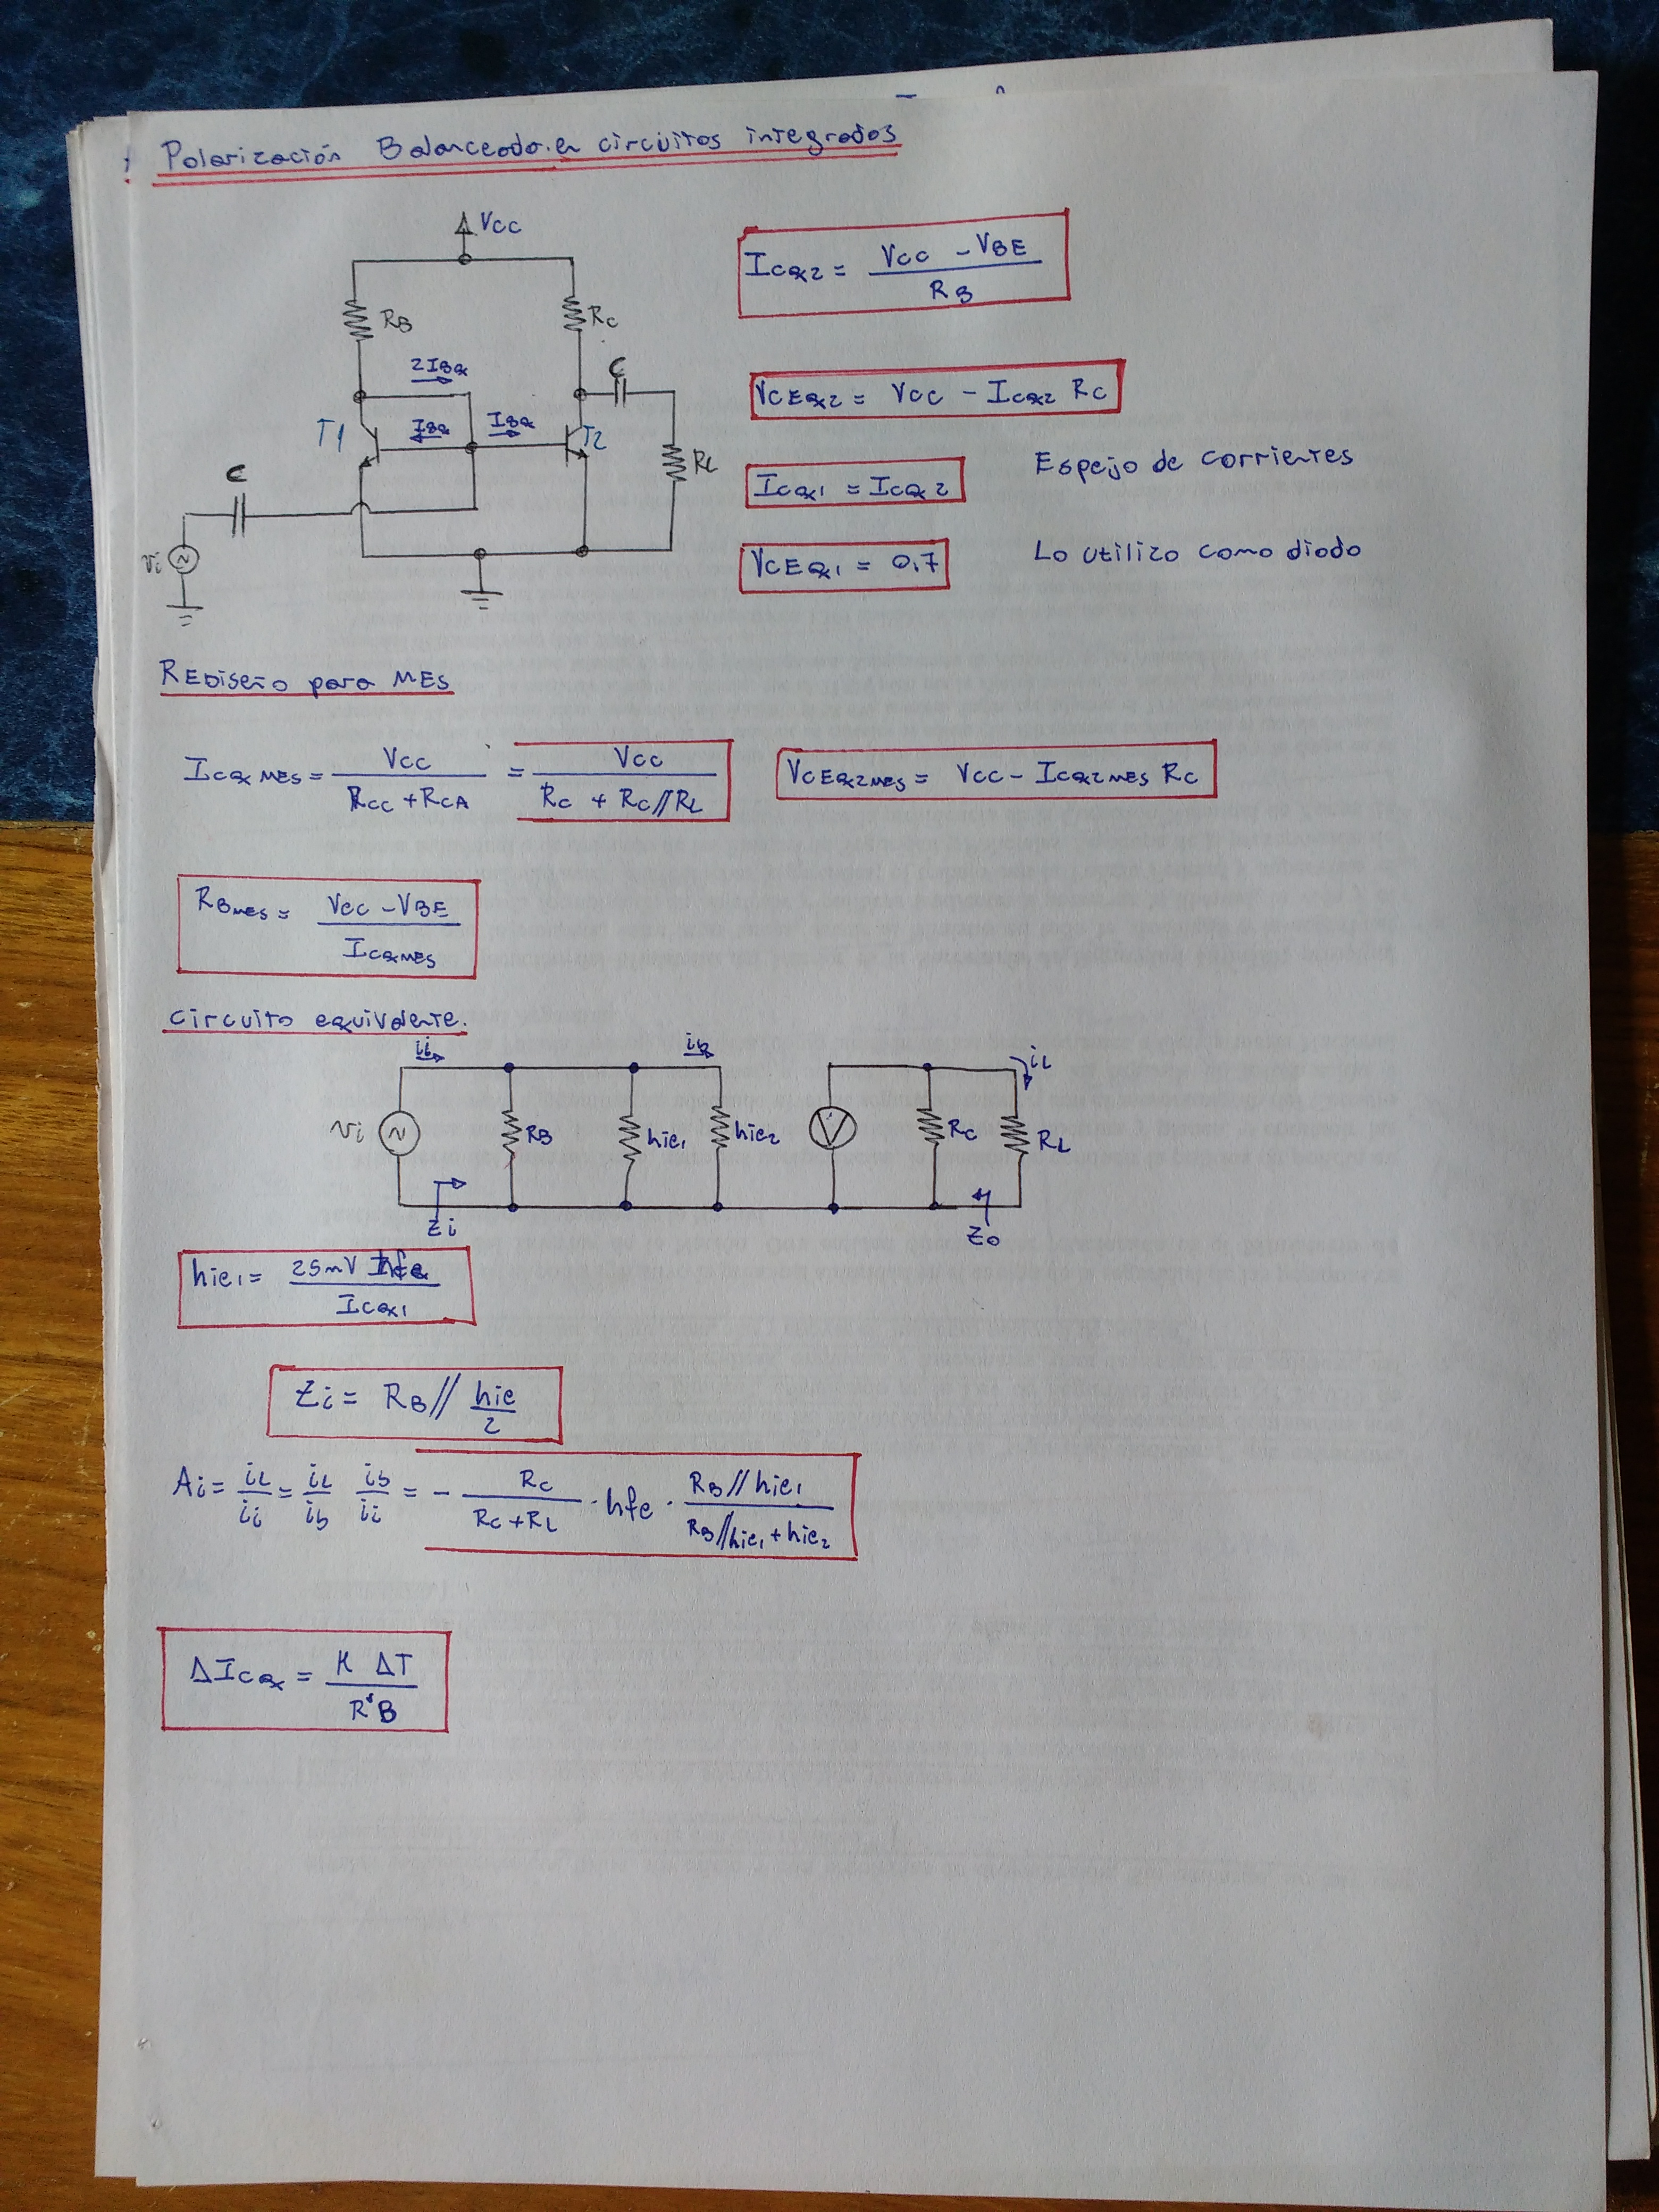 Polarización Balanceada en circuitos integrados
VCC
RB
RC
2IBQ
C
T1
IBQ
IBQ
T2
RL
C
vi
ICQ2 = (VCC - VBE) / RB
VCEQ2 = VCC - ICQ2 RC
ICQ1 = ICQ2
Espejo de corrientes
VCEQ1 = 0,7
Lo utilizo como diodo
REDiseño para MES
ICQ MES = VCC / (RCC + RCA) = VCC / (RC + RC//RL)
VCEQ2MES = VCC - ICQ2MES RC
RBMES = (VCC - VBE) / ICQMES
Circuito equivalente.
ii
ib
iL
vi
RB
hie1
hie2
RC
RL
Zi
Zo
hie1 = 25mV hfe / ICQ1
Zi = RB // hie/2
Ai = iL/ii = iL/ib ib/ii = - RC/(RC + RL) · hfe · (RB//hie1)/(RB//hie1 + hie2)
ΔICQ = K ΔT / RB